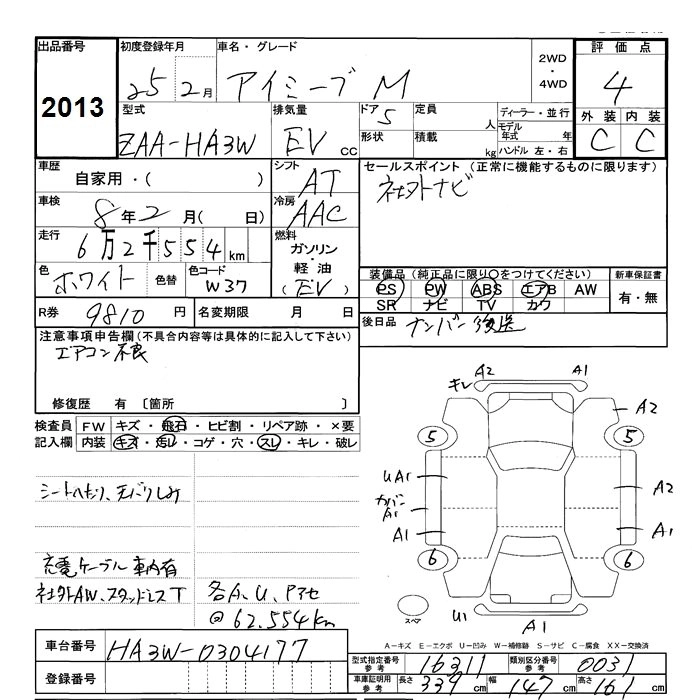 出品番号 初度登録年月 車名・グレード 2WD・4WD 評価点
2013 25 2月 アイミーブ M 4
型式 排気量 ドア 定員 ディーラー・並行 外装 内装
ZAA-HA3W EV cc 5 人 モデル年式 年 C C
形状 積載 kg ハンドル 左・右
車歴 シフト セールスポイント (正常に機能するものに限ります)
自家用・( ) AT 社外ナビ
車検 冷房
8年2月( 日) AAC
走行 燃料
6万2千554km ガソリン・軽油
色 色替 色コード (EV) 装備品(純正品に限り○をつけてください) 新車保証書
ホワイト W37 PS PW ABS エアB AW 有・無
SR ナビ TV カワ
R券 9810円 名変期限 月 日 後日品 ナンバー後送
注意事項申告欄(不具合内容等は具体的に記入して下さい)
エアコン不良
修復歴 有 〔箇所 〕
検査員記入欄 FW キズ・飛石・ヒビ割・リペア跡・×要
内装 キズ・汚れ・コゲ・穴・スレ・キレ・破レ
キレ A2 A1
A2
5 5
UA1 A2
カバーA1
A1 A1
6 6
シートヘタリ、天バリしみ
充電ケーブル車内有
社外AW、スタッドレスT 各A、U、Pアセ
@62.554km
スペア U1 A1
A-キズ E-エクボ U-凹み W-補修跡 S-サビ C-腐食 XX-交換済
車台番号 HA3W-0304177
型式指定番号 参考 16211 類別区分番号 参考 0031
登録番号 車庫証明用 参考 長さ 339cm 幅 147cm 高さ 161cm